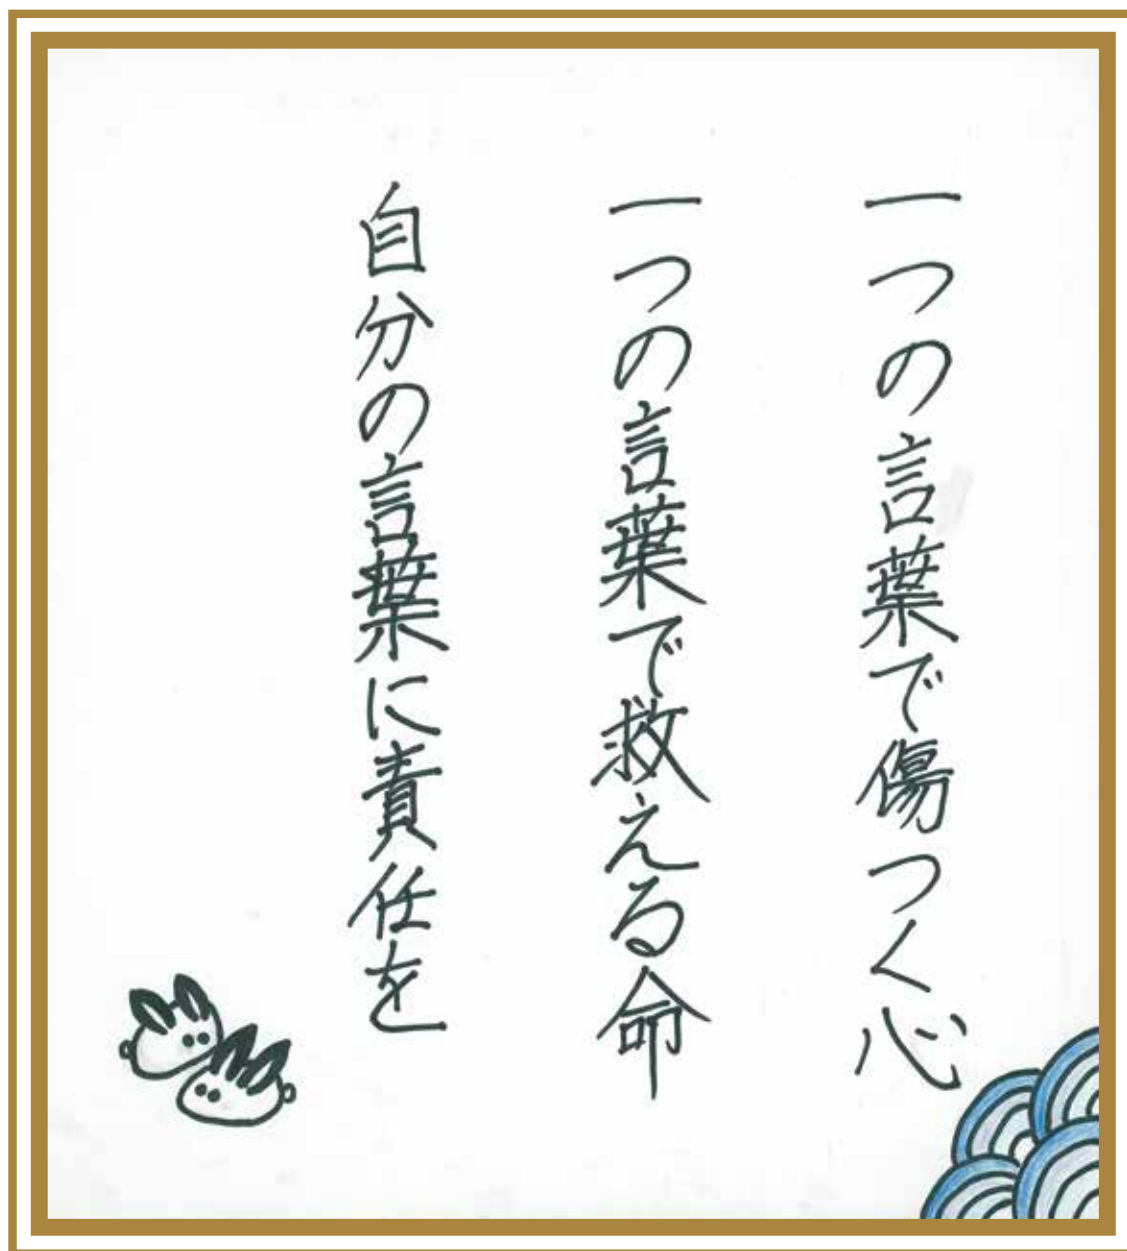 一つの言葉で傷つく心
一つの言葉で救える命
自分の言葉に責任を